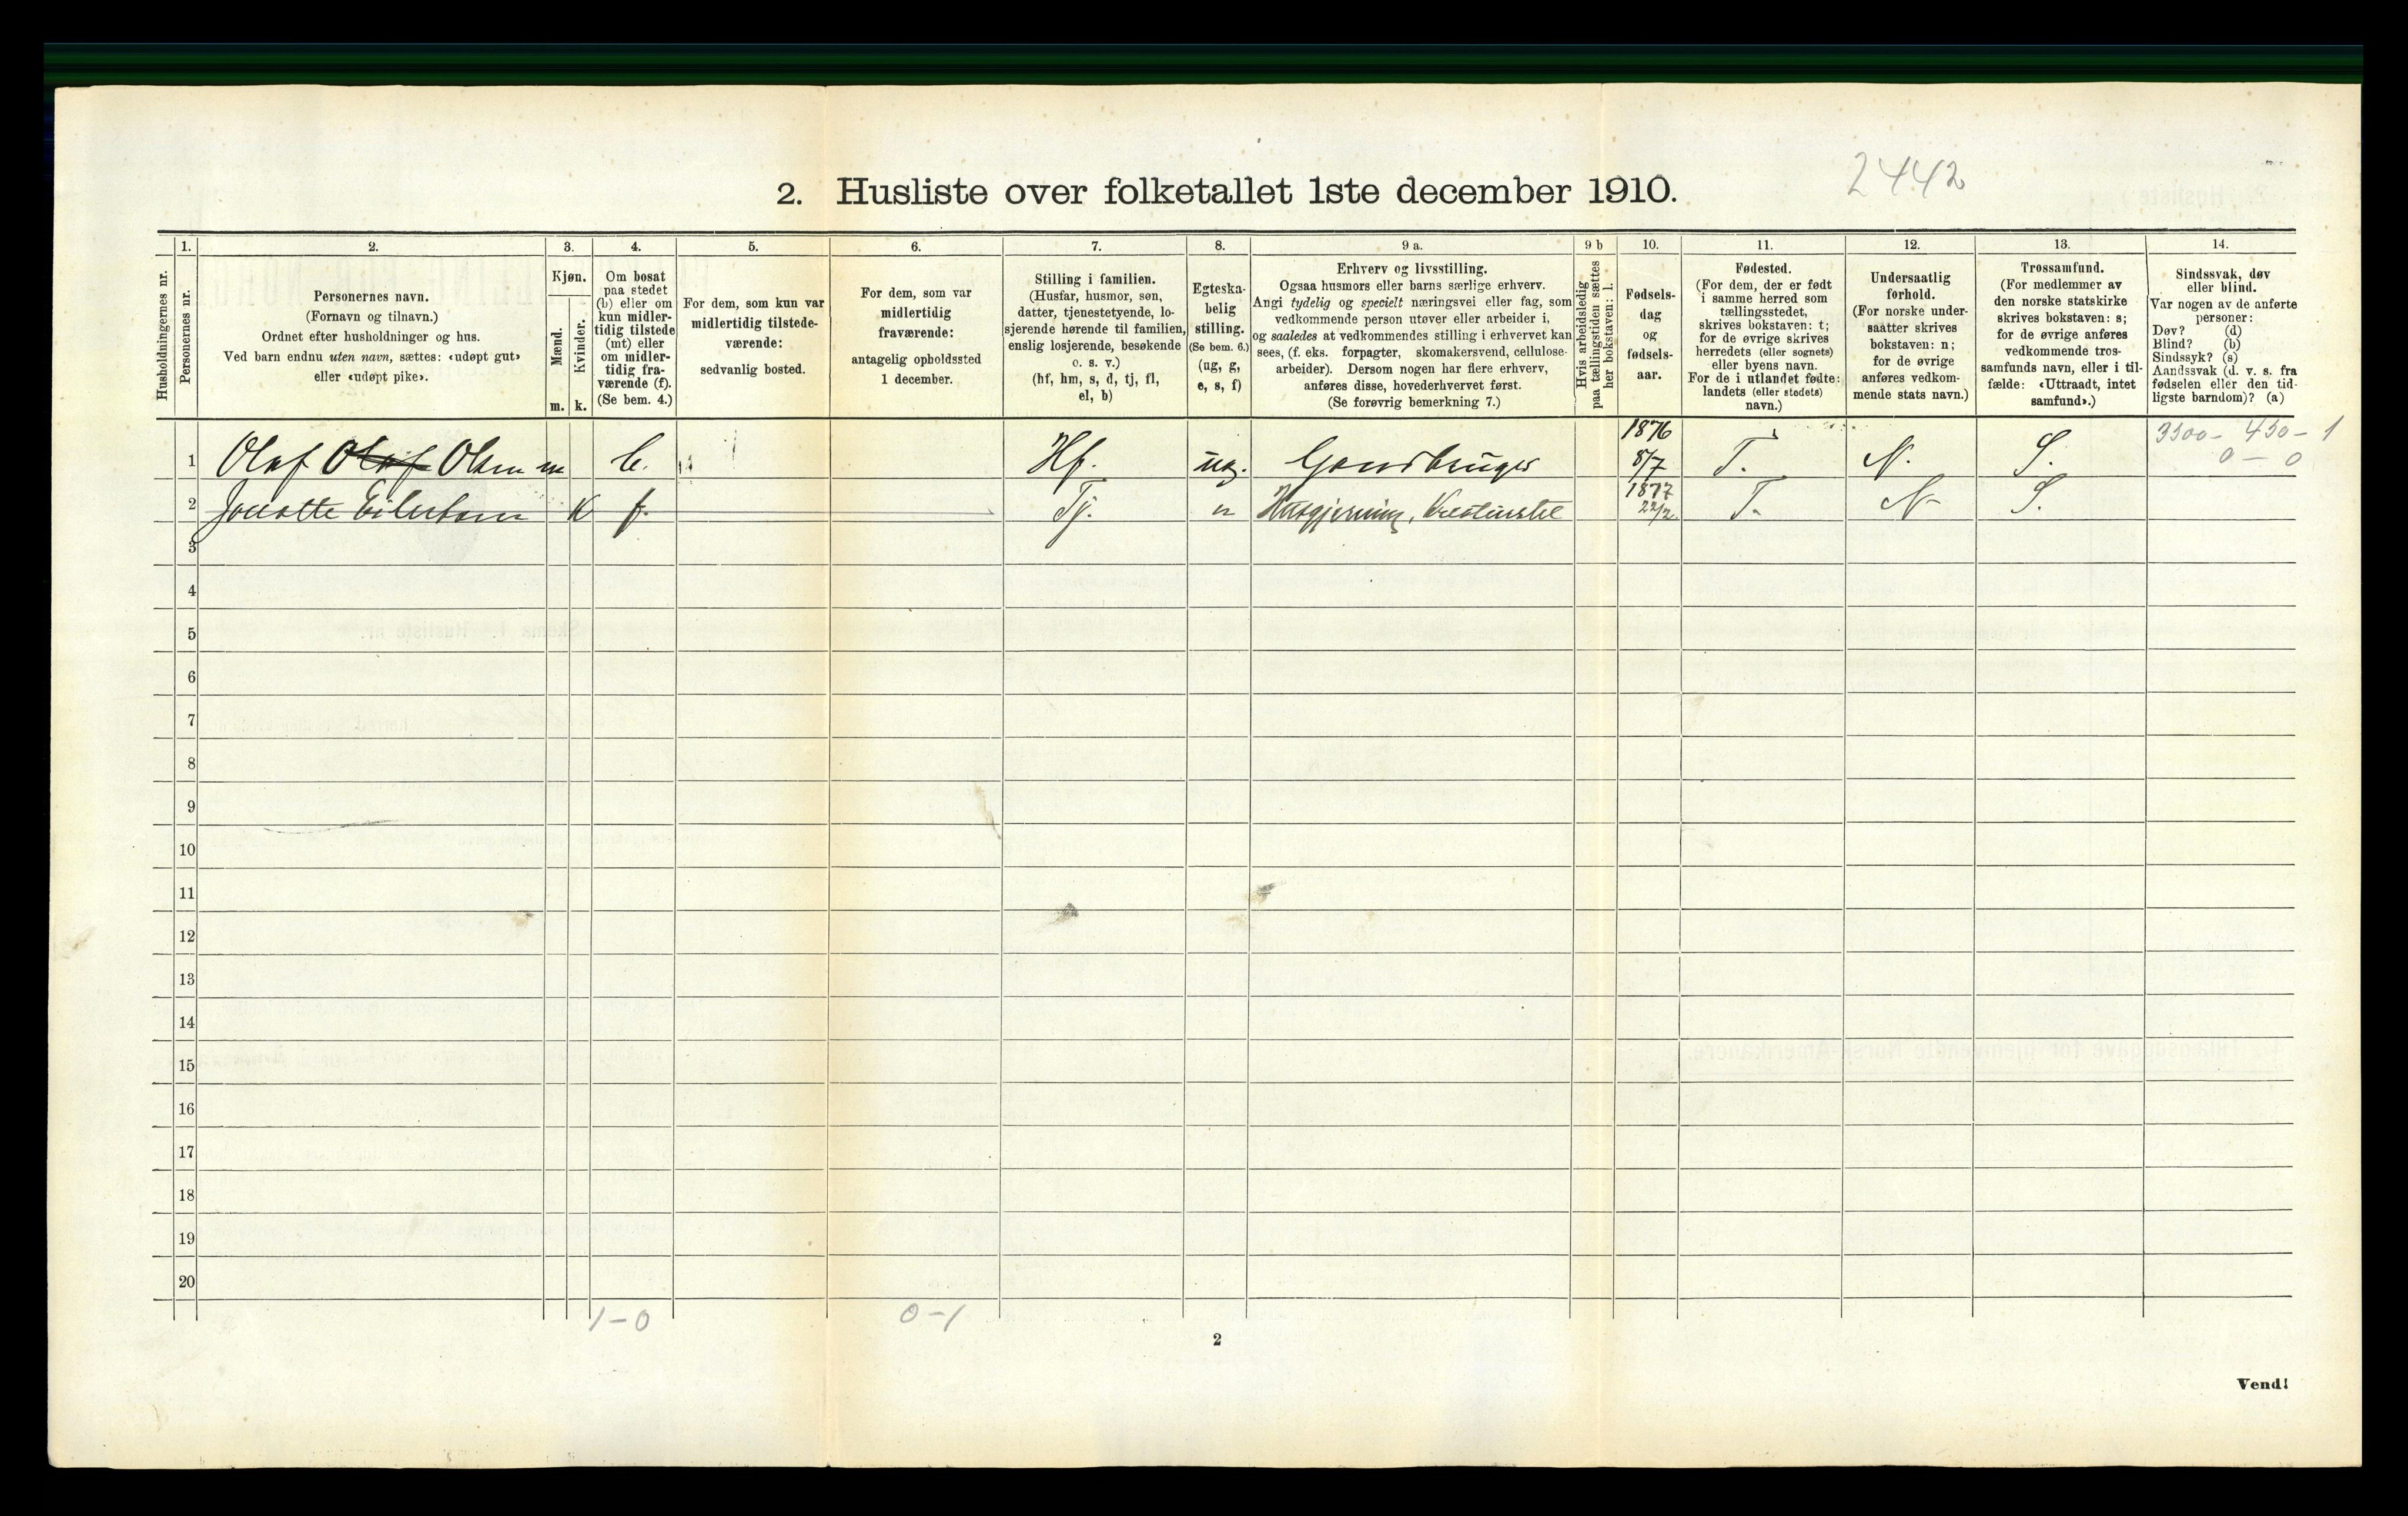 2. Husliste over folketallet 1ste december 1910.
2442
1. 2. 3. 4. 5. 6. 7. 8. 9 a. 9 b 10. 11. 12. 13. 14.
Husholdningernes nr.
Personernes nr.
Personernes navn.
(Fornavn og tilnavn.)
Ordnet efter husholdninger og hus.
Ved barn endnu uten navn, sættes: «udøpt gut»
eller «udøpt pike».
Kjøn.
Mænd.
Kvinder.
m. k.
Om bosat
paa stedet
(b) eller om
kun midler-
tidig tilstede
(mt) eller
om midler-
tidig fra-
værende (f).
(Se bem. 4.)
For dem, som kun var
midlertidig tilstede-
værende:
sedvanlig bosted.
For dem, som var
midlertidig
fraværende:
antagelig opholdssted
1 december.
Stilling i familien.
(Husfar, husmor, søn,
datter, tjenestetyende, lo-
sjerende hørende til familien,
enslig losjerende, besøkende
o. s. v.)
(hf, hm, s, d, tj, fl,
el, b)
Egteska-
belig
stilling.
(Se bem. 6.)
(ug, g,
e, s, f)
Erhverv og livsstilling.
Ogsaa husmors eller barns særlige erhverv.
Angi tydelig og specielt næringsvei eller fag, som
vedkommende person utøver eller arbeider i,
og saaledes at vedkommendes stilling i erhvervet kan
sees, (f. eks. forpagter, skomakersvend, cellulose-
arbeider). Dersom nogen har flere erhverv,
anføres disse, hovederhvervet først.
(Se forøvrig bemerkning 7.)
Hvis arbeidsledig
paa tællingstiden sættes
her bokstaven: l.
Fødsels-
dag
og
fødsels-
aar.
Fødested.
(For dem, der er født
i samme herred som
tællingsstedet,
skrives bokstaven: t;
for de øvrige skrives
herredets (eller sognets)
eller byens navn.
For de i utlandet fødte:
landets (eller stedets)
navn.)
Undersaatlig
forhold.
(For norske under-
saatter skrives
bokstaven: n;
for de øvrige
anføres vedkom-
mende stats navn.)
Trossamfund.
(For medlemmer av
den norske statskirke
skrives bokstaven: s;
for de øvrige anføres
vedkommende tros-
samfunds navn, eller i til-
fælde: «Uttraadt, intet
samfund».)
Sindssvak, døv
eller blind.
Var nogen av de anførte
personer:
Døv? (d)
Blind? (b)
Sindssyk? (s)
Aandssvak (d. v. s. fra
fødselen eller den tid-
ligste barndom)? (a)
3300 - 450 - 1
0 - 0
1 Olaf Olaf Olsen m b. Hf. ug. Gaardbruger 1876 8/7 T. N. S.
2 Eilertsen K f. Tj. " Husgjerning, 1877 22/2. T. N S.
3
4
5
6
7
8
9
10
11
12
13
14
15
16
17
18
19
20
1-0 0-1
2
Vend!